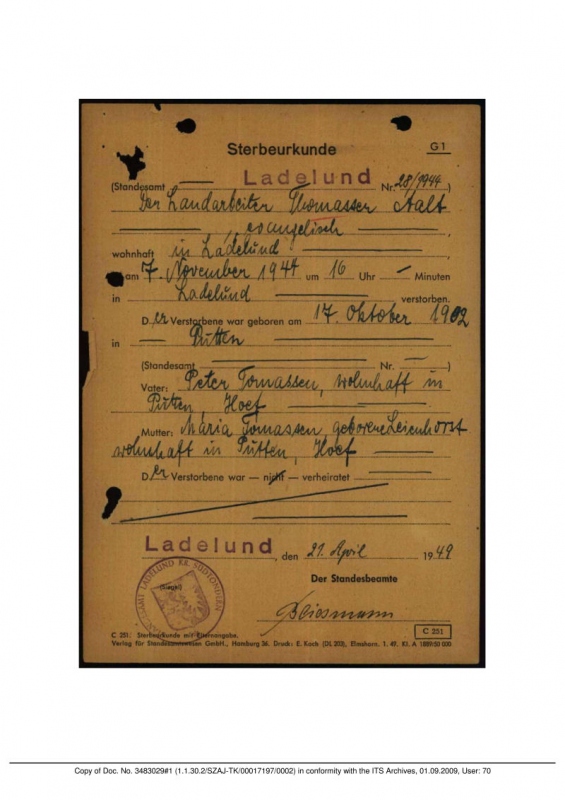 Sterbeurkunde
G 1
(Standesamt Ladelund Nr. 28/1944)
Der Landarbeiter Thomassen Aalt
evangelisch
wohnhaft in Ladelund
am 7. November 1944 um 16 Uhr — Minuten
in Ladelund verstorben.
Der Verstorbene war geboren am 17. Oktober 1902
in — Putten
(Standesamt Nr. — )
Vater: Peter Tomassen, wohnhaft in
Putten, Hoef
Mutter: Maria Tomassen, geborene Leienhorst
wohnhaft in Putten, Hoef
Der Verstorbene war — nicht — verheiratet
Ladelund, den 21. April 1949
Der Standesbeamte
(Siegel)
STANDESAMT LADELUND KR. SÜDTONDERN
C 251
C 251. Sterbeurkunde mit Elternangabe.
Verlag für Standesamtwesen GmbH., Hamburg 36. Druck: E. Koch (DL 203), Elmshorn. 1. 49. Kl. A 1889/50 000
Copy of Doc. No. 3483029#1 (1.1.30.2/SZAJ-TK/00017197/0002) in conformity with the ITS Archives, 01.09.2009, User: 70